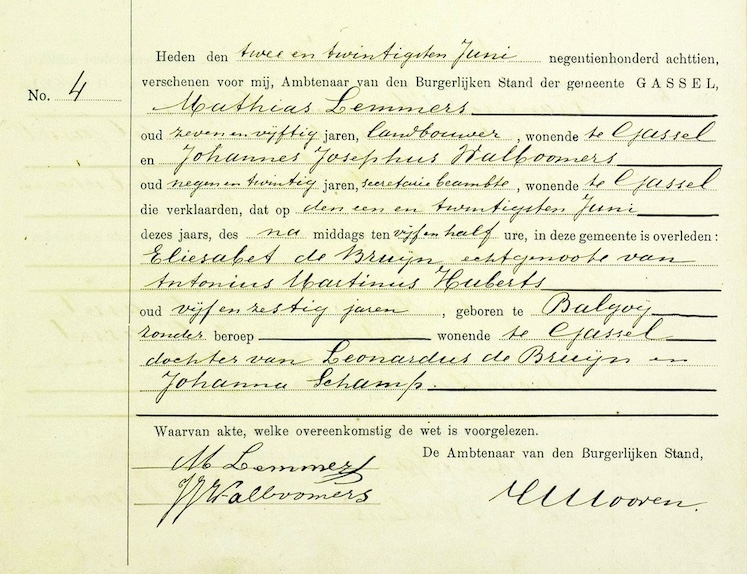 Heden den twee en twintigsten Juni negentienhonderd achttien,
verschenen voor mij, Ambtenaar van den Burgerlijken Stand der gemeente GASSEL,
No. 4
Mathias Lemmers
oud zeven en vijftig jaren, landbouwer, wonende te Gassel
en Johannes Josephus Walboomers
oud negen en twintig jaren, secretarie beambte, wonende te Gassel
die verklaarden, dat op den een en twintigsten Juni
dezes jaars, des na middags ten vijf en half ure, in deze gemeente is overleden:
Eliesabet de Bruijn, echtgenoote van
Antonius Martinus Huberts
oud vijf en zestig jaren, geboren te Balgoij
zonder beroep wonende te Gassel
dochter van Leonardus de Bruijn en
Johanna Schamp.
Waarvan akte, welke overeenkomstig de wet is voorgelezen.
De Ambtenaar van den Burgerlijken Stand,
M Lemmers
JJWalboomers